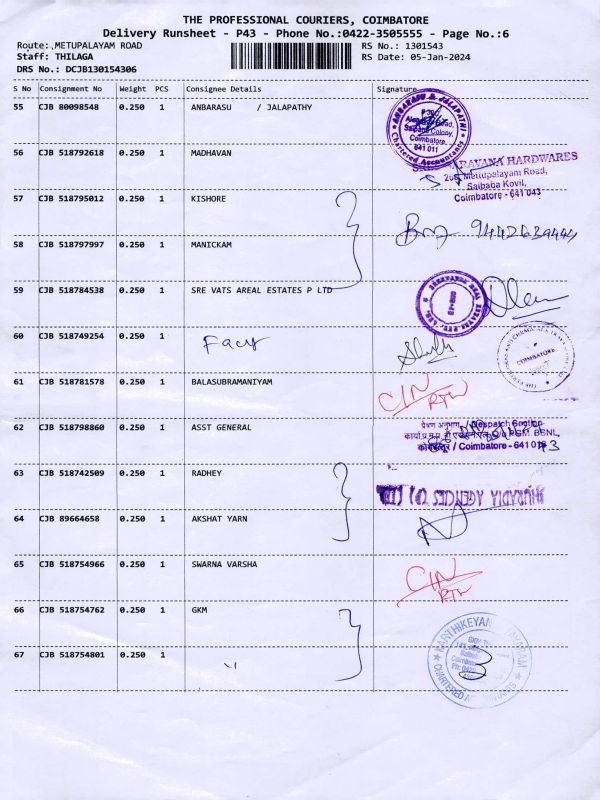 THE PROFESSIONAL COURIERS, COIMBATORE
Delivery Runsheet - P43 - Phone No.:0422-3505555 - Page No.:6
Route:,METUPALAYAM ROAD RS No.: 1301543
Staff: THILAGA RS Date: 05-Jan-2024
DRS No.: DCJB130154306
S No Consignment No Weight PCS Consignee Details Signature
55 CJB 80098548 0.250 1 ANBARASU / JALAPATHY
ANBARASU & JALAPATHI
Saibaba Colony,
Coimbatore
641 011
Chartered Accountants
56 CJB 518792618 0.250 1 MADHAVAN
HARDWARES
Mettupalayam Road,
Saibaba Kovil,
Coimbatore - 641 043
57 CJB 518795012 0.250 1 KISHORE
58 CJB 518797997 0.250 1 MANICKAM
59 CJB 518784538 0.250 1 SRE VATS AREAL ESTATES P LTD
60 CJB 518749254 0.250 1 Facy
COIMBATORE
61 CJB 518781578 0.250 1 BALASUBRAMANIYAM
62 CJB 518798860 0.250 1 ASST GENERAL
प्रेषण अनुभाग / Despatch Section
PGM BSNL,
कोयम्बत्तूर / Coimbatore - 641 043
63 CJB 518742509 0.250 1 RADHEY
64 CJB 89664658 0.250 1 AKSHAT YARN
65 CJB 518754966 0.250 1 SWARNA VARSHA
66 CJB 518754762 0.250 1 GKM
KARTHIKEYAN
CHARTERED ACCOUNTANTS
67 CJB 518754801 0.250 1 "